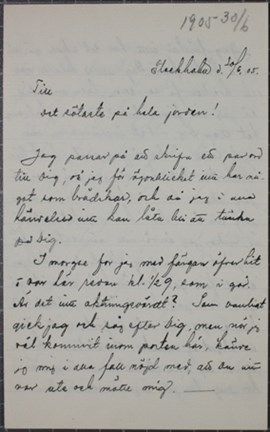 1905-30/6
Stockholm d. 30/6. 05.
Till
det sötaste på hela jorden!
Jag passar på att skrifa ett par ord
till Dig, då jag för ögonblicket inte har nå-
got som brådskar, och då jag i ana
händelser inte kan låta bli att tänka
på Dig.
I morgse for jag med färgen öfver hit
o var här redan kl. 1/29, som i går.
Är det inte aktningsvärdt? Som vanligt
gick jag och såg efter Dig, men när jag
väl kommit inom porten här, kände
jag mig i alla fall nöjd med, att Du inte
var ute och mötte mig.